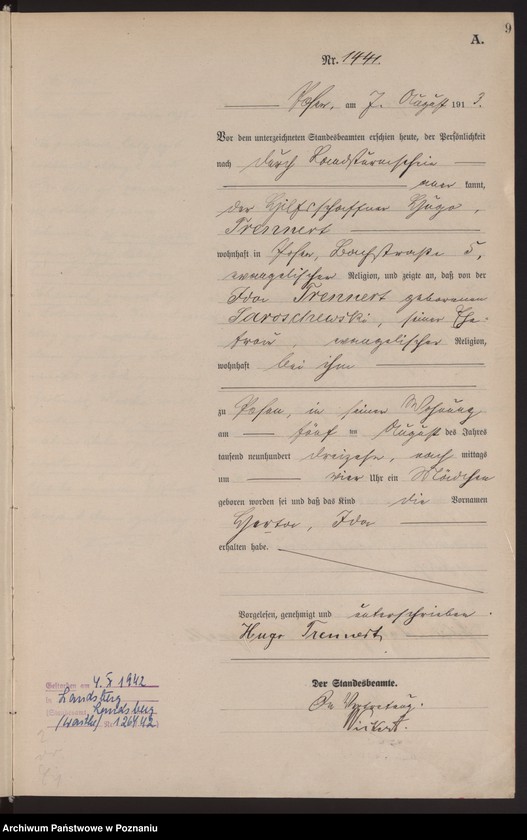 9
A.
Nr. 1441.
Posen, am 7. August 1913.
Vor dem unterzeichneten Standesbeamten erschien heute, der Persönlichkeit
nach durch Landsturmschein
aner kannt,
der Hilfsschaffner Hugo
Trennert
wohnhaft in Posen, Bachstraße 5,
evangelischer Religion, und zeigte an, daß von der
Ida Trennert geborenen
Jaroschewski, seiner Ehe-
frau, evangelischer Religion,
wohnhaft bei ihm
zu Posen, in seiner Wohnung
am fünf ten August des Jahres
tausend neunhundert dreizehn, nach mittags
um vier Uhr ein Mädchen
geboren worden sei und daß das Kind die Vornamen
Herta, Ida
erhalten habe.
Vorgelesen, genehmigt und unterschrieben.
Hugo Trennert
Der Standesbeamte.
In Vertretung.
Gestorben am 4.8.1942
in Landsberg
Landsberg
(Warthe) Nr. 1264/42
Archiwum Państwowe w Poznaniu